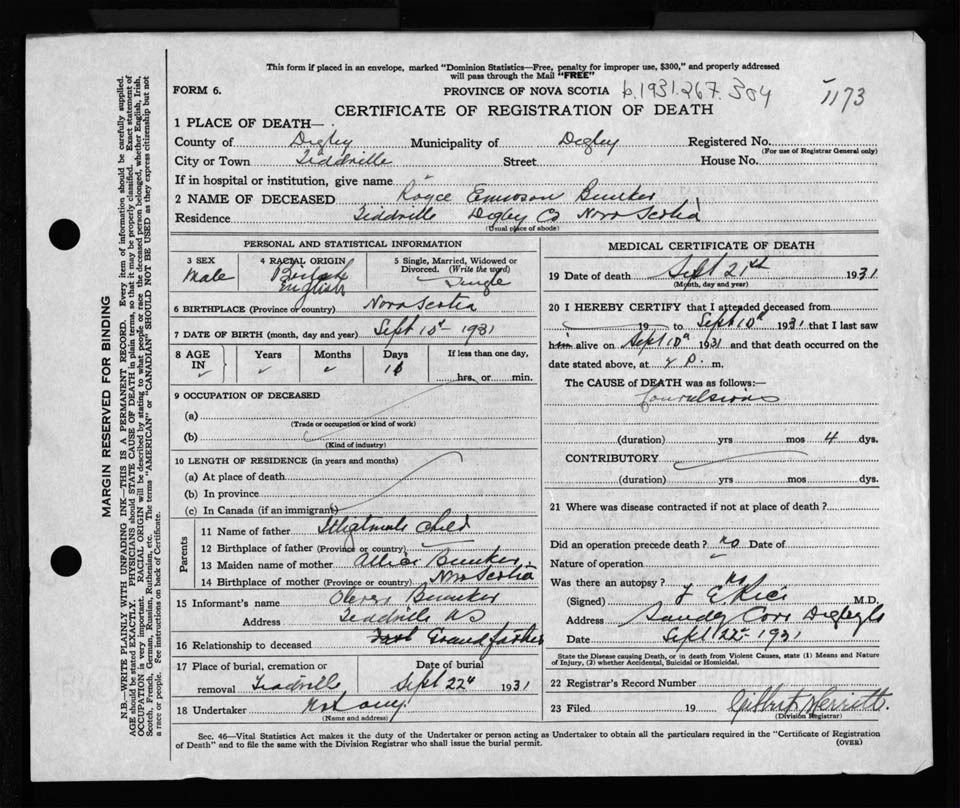 This form if placed in an envelope, marked "Dominion Statistics—Free, penalty for improper use, $300," and properly addressed
will pass through the Mail "FREE"
FORM 6. PROVINCE OF NOVA SCOTIA b.1931.267.304 1173
CERTIFICATE OF REGISTRATION OF DEATH
1 PLACE OF DEATH—
County of Digby Municipality of Digby Registered No.
(For use of Registrar General only)
City or Town Tiddville Street House No.
If in hospital or institution, give name
2 NAME OF DECEASED Royce Emerson Bunker
Residence Tiddville Digby Co Nova Scotia
(Usual place of abode)
PERSONAL AND STATISTICAL INFORMATION
3 SEX 4 RACIAL ORIGIN 5 Single, Married, Widowed or
Divorced. (Write the word)
Male English Single
6 BIRTHPLACE (Province or country) Nova Scotia
7 DATE OF BIRTH (month, day and year) Sept 10 - 1931
8 AGE IN Years Months Days If less than one day,
hrs. or min.
9 OCCUPATION OF DECEASED
(a)
(Trade or occupation or kind of work)
(b)
(Kind of industry)
10 LENGTH OF RESIDENCE (in years and months)
(a) At place of death
(b) In province
(c) In Canada (if an immigrant)
Parents
11 Name of father Illigtmate Child
12 Birthplace of father (Province or country)
13 Maiden name of mother Bunker
14 Birthplace of mother (Province or country) Nova Scotia
15 Informant's name Bunker
Address Tiddville NS
16 Relationship to deceased Grandfather
17 Place of burial, cremation or Date of burial
removal Tiddville Sept 22 1931
18 Undertaker Not any
(Name and address)
MEDICAL CERTIFICATE OF DEATH
19 Date of death Sept 21th 1931
(Month, day and year)
20 I HEREBY CERTIFY that I attended deceased from
19 to Sept 10 1931 that I last saw
him alive on Sept 10 1931 and that death occurred on the
date stated above, at P. m.
The CAUSE of DEATH was as follows:—
Convulsions
(duration) yrs mos 4 dys.
CONTRIBUTORY
(duration) yrs mos dys.
21 Where was disease contracted if not at place of death?
Did an operation precede death? no Date of
Nature of operation
Was there an autopsy? no
(Signed) Rice M.D.
Address Sandy Cove Digby
Date Sept 22 - 1931
State the Disease causing Death, or in death from Violent Causes, state (1) Means and Nature
of Injury, (2) whether Accidental, Suicidal or Homicidal.
22 Registrar's Record Number
23 Filed 19 Gilbert Merritt
(Division Registrar)
Sec. 46—Vital Statistics Act makes it the duty of the Undertaker or person acting as Undertaker to obtain all the particulars required in the "Certificate of Registration
of Death" and to file the same with the Division Registrar who shall issue the burial permit. (OVER)
MARGIN RESERVED FOR BINDING
N.B.—WRITE PLAINLY WITH UNFADING INK—THIS IS A PERMANENT RECORD. Every item of information should be carefully supplied.
AGE should be stated EXACTLY. PHYSICIANS should STATE CAUSE OF DEATH in plain terms, so that it may be properly classified. Exact statement of
OCCUPATION is very important. RACIAL ORIGIN will be described by stating to what people or race the deceased person belonged, whether English, Irish,
Scotch, French, German, Russian, Ruthenian, etc. The terms "AMERICAN" or "CANADIAN" SHOULD NOT BE USED as they express citizenship but not
a race or people. See instructions on back of Certificate.